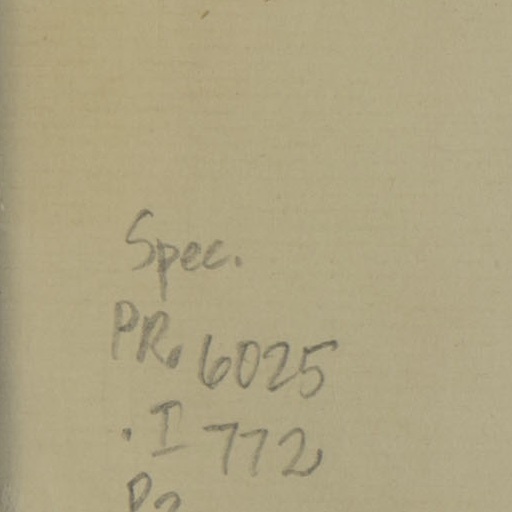 Spec.
PR. 6025
. I 772
P2